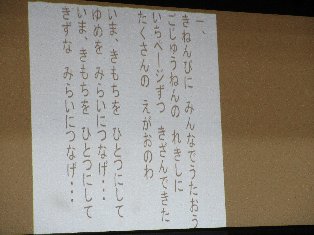 一、
きねんびに みんなでうたおう
ごじゅうねんの れきしに
いちページずつ きざんできた
たくさんの えがおのわ
いま、きもちを ひとつにして
ゆめを みらいにつなげ・・・
いま、きもちを ひとつにして
きずな みらいにつなげ・・・